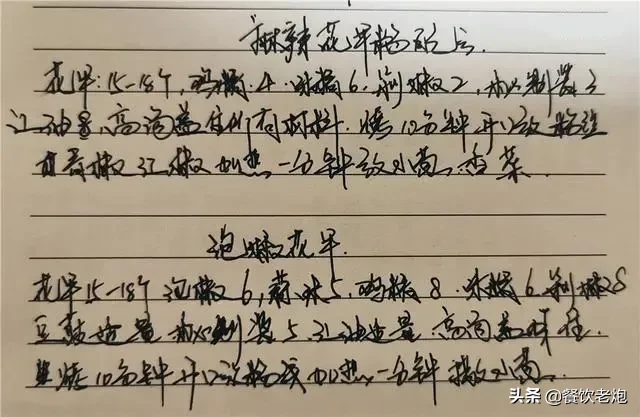 麻辣花甲粉配点
花甲:15-18个,鸡精:4 味精6 剁椒2,
红油适量,高汤盖住所有材料.烧10分钟开口放粉丝
青椒 红椒 加热一分钟放小葱、香菜
泡椒花甲
花甲15-18个 泡椒6,蒜末5,鸡精8 味精6 剁椒25
豆豉适量 秘制酱5 红油适量 高汤盖住.
烧10分钟开口 加热一分钟 撒小葱
头条 @餐饮老炮